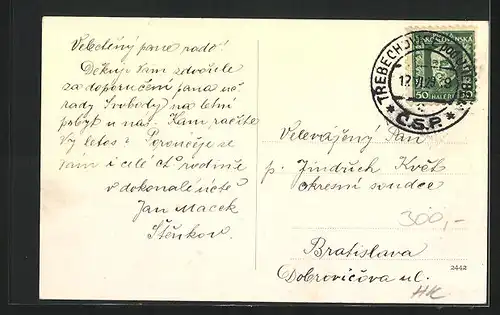 Velectěný pane rado!
Děkuji Vám zdvořile
za doporučení pana
rady Svobody na letní
pobyt u nás. Kam račíte
Vy letos? Poroučeje se
Vám i celé ct. rodině
v dokonalé úctě
Jan Macek
Stěnkov.
TŘEBECHOVICE POD OREBEM
12 VI 29
* Č.S.P. *
50 HALÉŘŮ
Velevážený Pan
p. Jindřich Květ
okresní soudce
300,-
Bratislava
Dobrovičova ul.
2442
HK